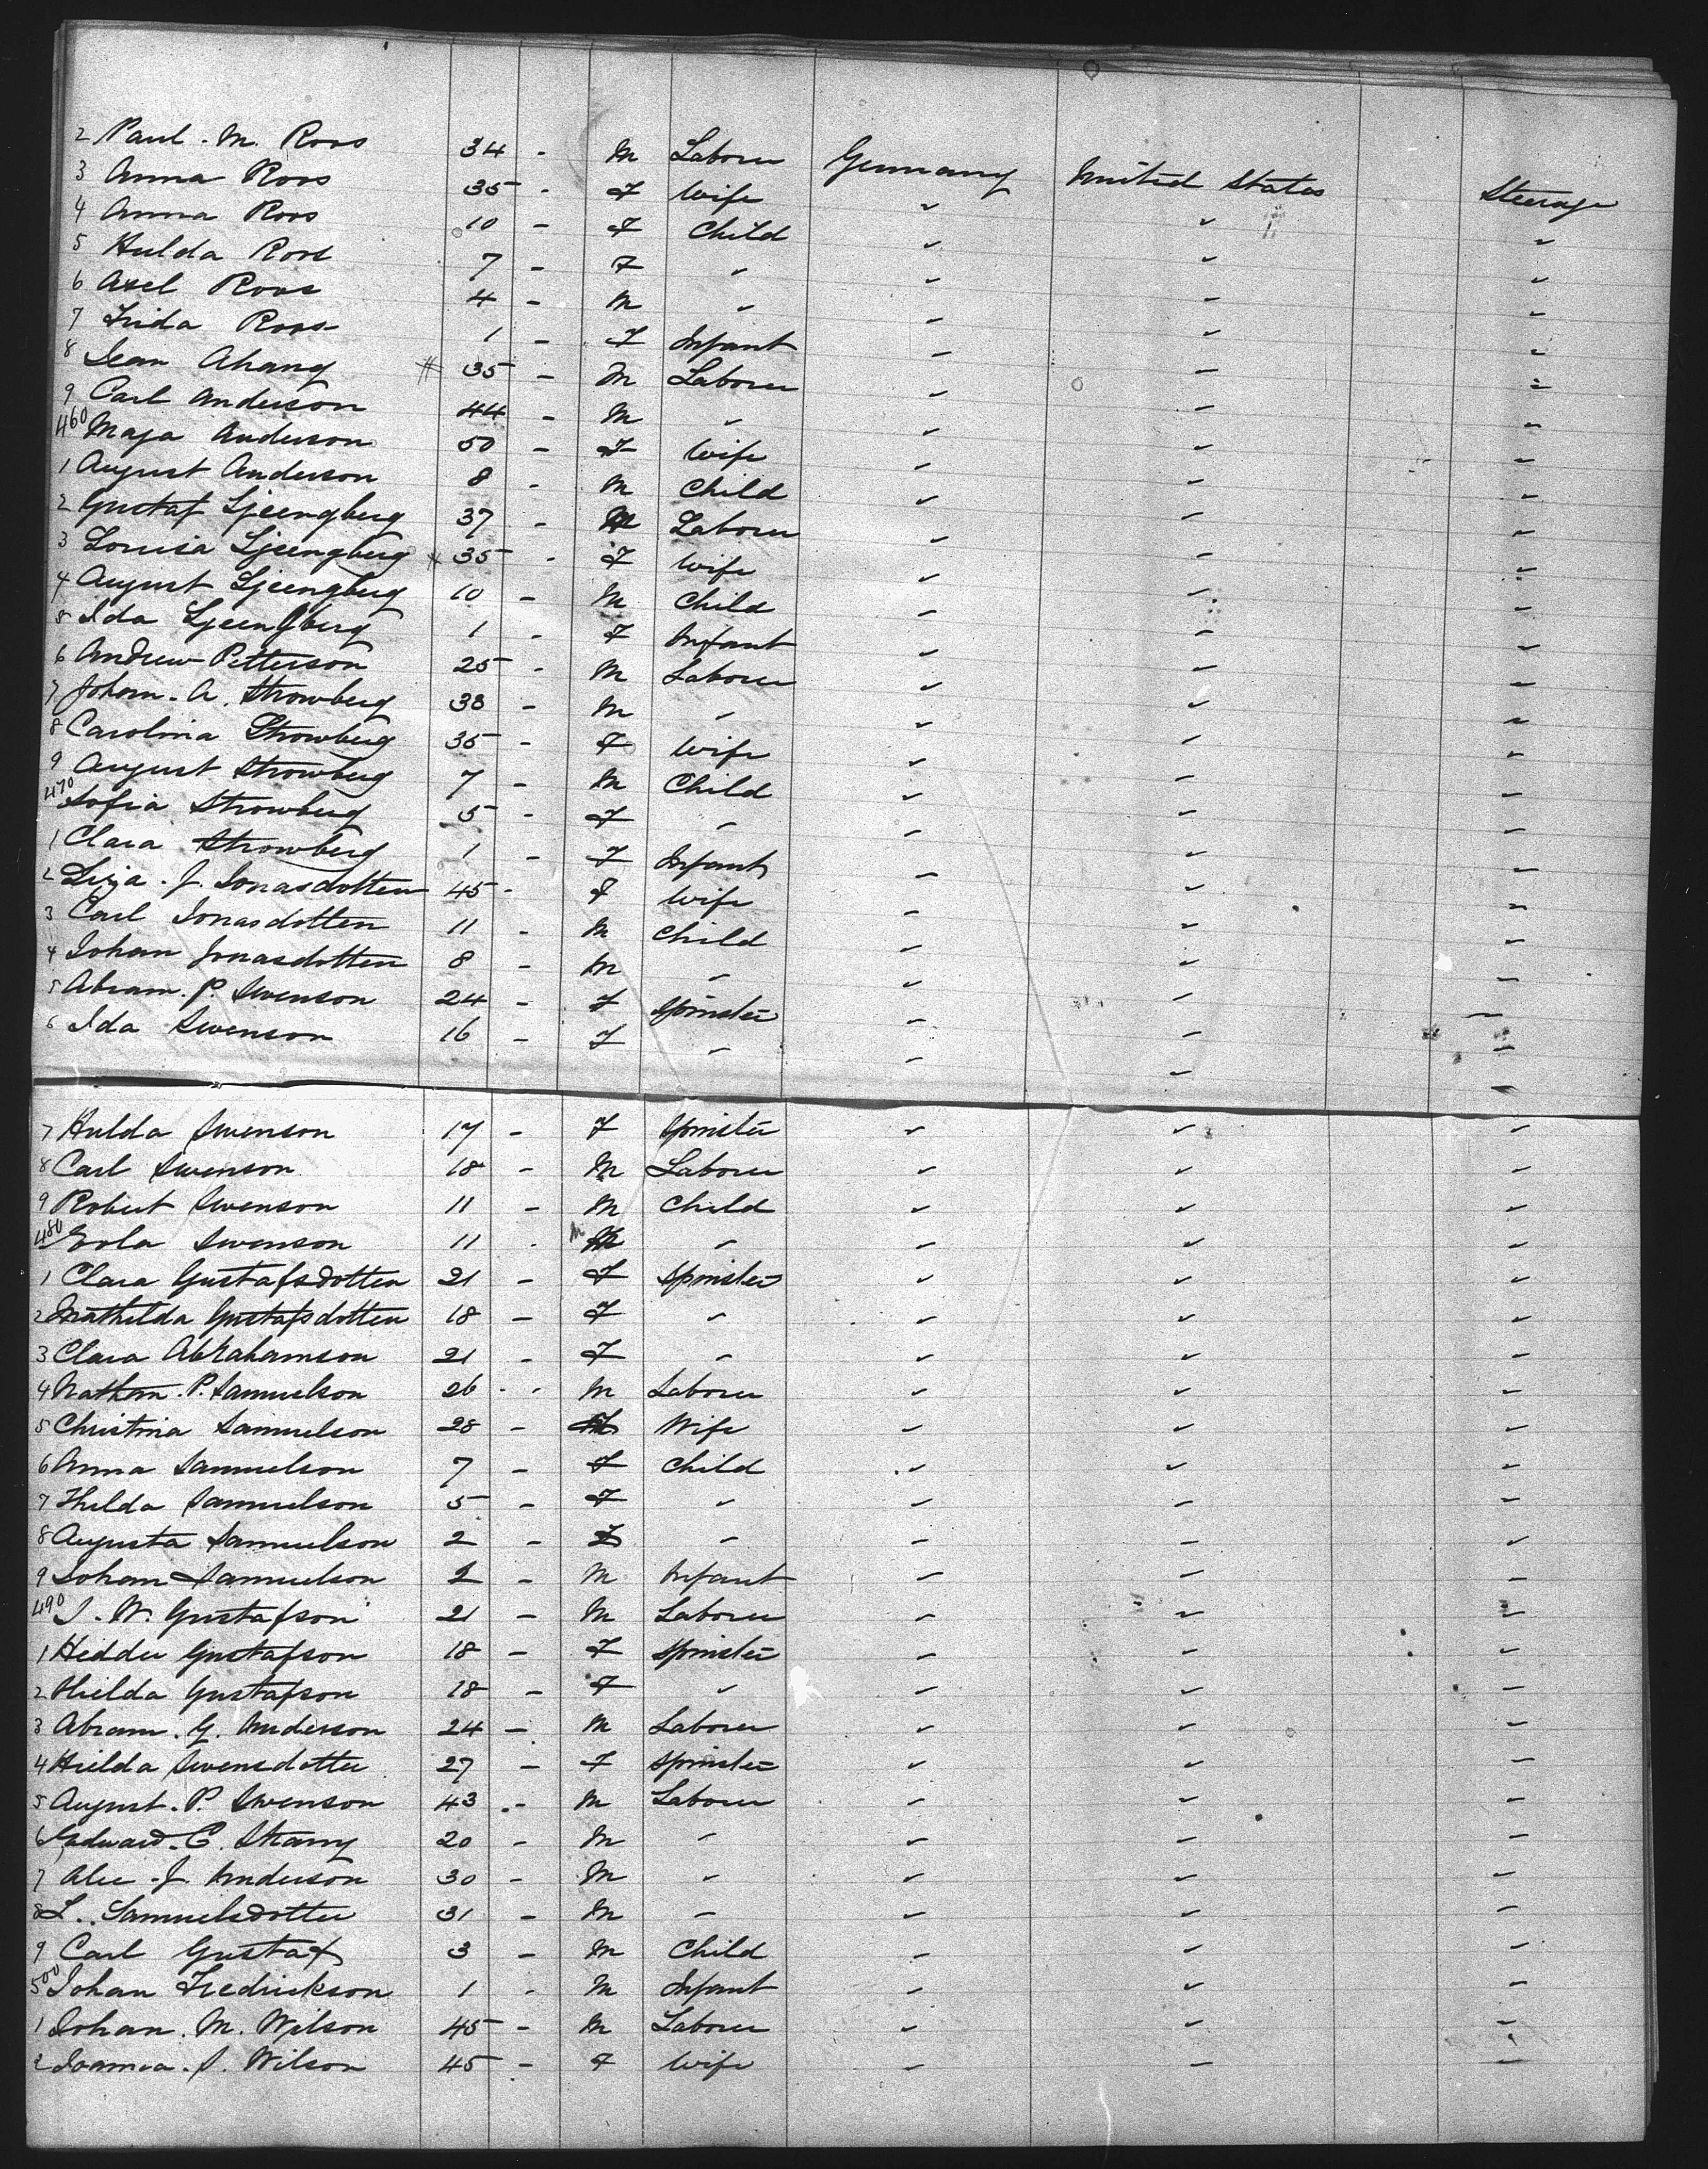 2 Paul . M. Roos 34 - M Laborer Germany United States Steerage
3 Anna Roos 35 - F Wife " " "
4 Anna Roos 10 - F Child " " "
5 Hulda Roos 7 - F " " " "
6 Axel Roos 4 - M " " " "
7 Frida Roos 1 - F Infant " " "
8 Jean Ahang 35 - M Laborer " " "
9 Carl Anderson 44 - M " " " "
460 Maja Anderson 50 - F Wife " " "
1 August Anderson 8 - M Child " " "
2 Gustaf Ljeengberg 37 - M Laborer " " "
3 Louisa Ljeengberg 35 - F Wife " " "
4 August Ljeengberg 10 - M Child " " "
5 Ida Ljeengberg 1 - F Infant " " "
6 Andrew Petterson 25 - M Laborer " " "
7 Johan . A. Strowberg 38 - M " " " "
8 Carolina Strowberg 35 - F Wife " " "
9 August Strowberg 7 - M Child " " "
470 Sofia Strowberg 5 - F " " " "
1 Clara Strowberg 1 - F Infant " " "
2 . J. Jonasdotten 45 - F Wife " " "
3 Carl Jonasdotten 11 - M Child " " "
4 Johan Jonasdotten 8 - M " " " "
5 Abram . P. Swenson 24 - F Spinster " " "
6 Ida Swenson 16 - F " " " "
7 Hulda Swenson 17 - F Spinster " " "
8 Carl Swenson 18 - M Laborer " " "
9 Robert Swenson 11 - M Child " " "
480 Erla Swenson 11 - M " " " "
1 Clara Gustafsdotten 21 - F Spinster " " "
2 Mathilda Gustafsdotten 18 - F " " " "
3 Clara Abrahamson 21 - F " " " "
4 Nathan . P. Samuelson 26 - M Laborer " " "
5 Christina Samuelson 28 - F Wife " " "
6 Anna Samuelson 7 - F Child " " "
7 Hulda Samuelson 5 - F " " " "
8 Augusta Samuelson 2 - F " " " "
9 Johan Samuelson 2 - M Infant " " "
490 J. W. Gustafson 21 - M Laborer " " "
1 Hedder Gustafson 18 - F Spinster " " "
2 Hielda Gustafson 18 - F " " " "
3 Abram . G. Anderson 24 - M Laborer " " "
4 Hielda Swensdotter 27 - F Spinster " " "
5 August . P. Swenson 43 - M Laborer " " "
6 Edward . C. Strany 20 - M " " " "
7 Alec . J. Anderson 30 - M " " " "
8 L. Samuelsdotter 31 - M " " " "
9 Carl Gustaf 3 - M Child " " "
500 Johan Fredrickson 1 - M Infant " " "
1 Johan . M. Wilson 45 - M Laborer " " "
2 Joanna . S. Wilson 45 - F Wife " " "